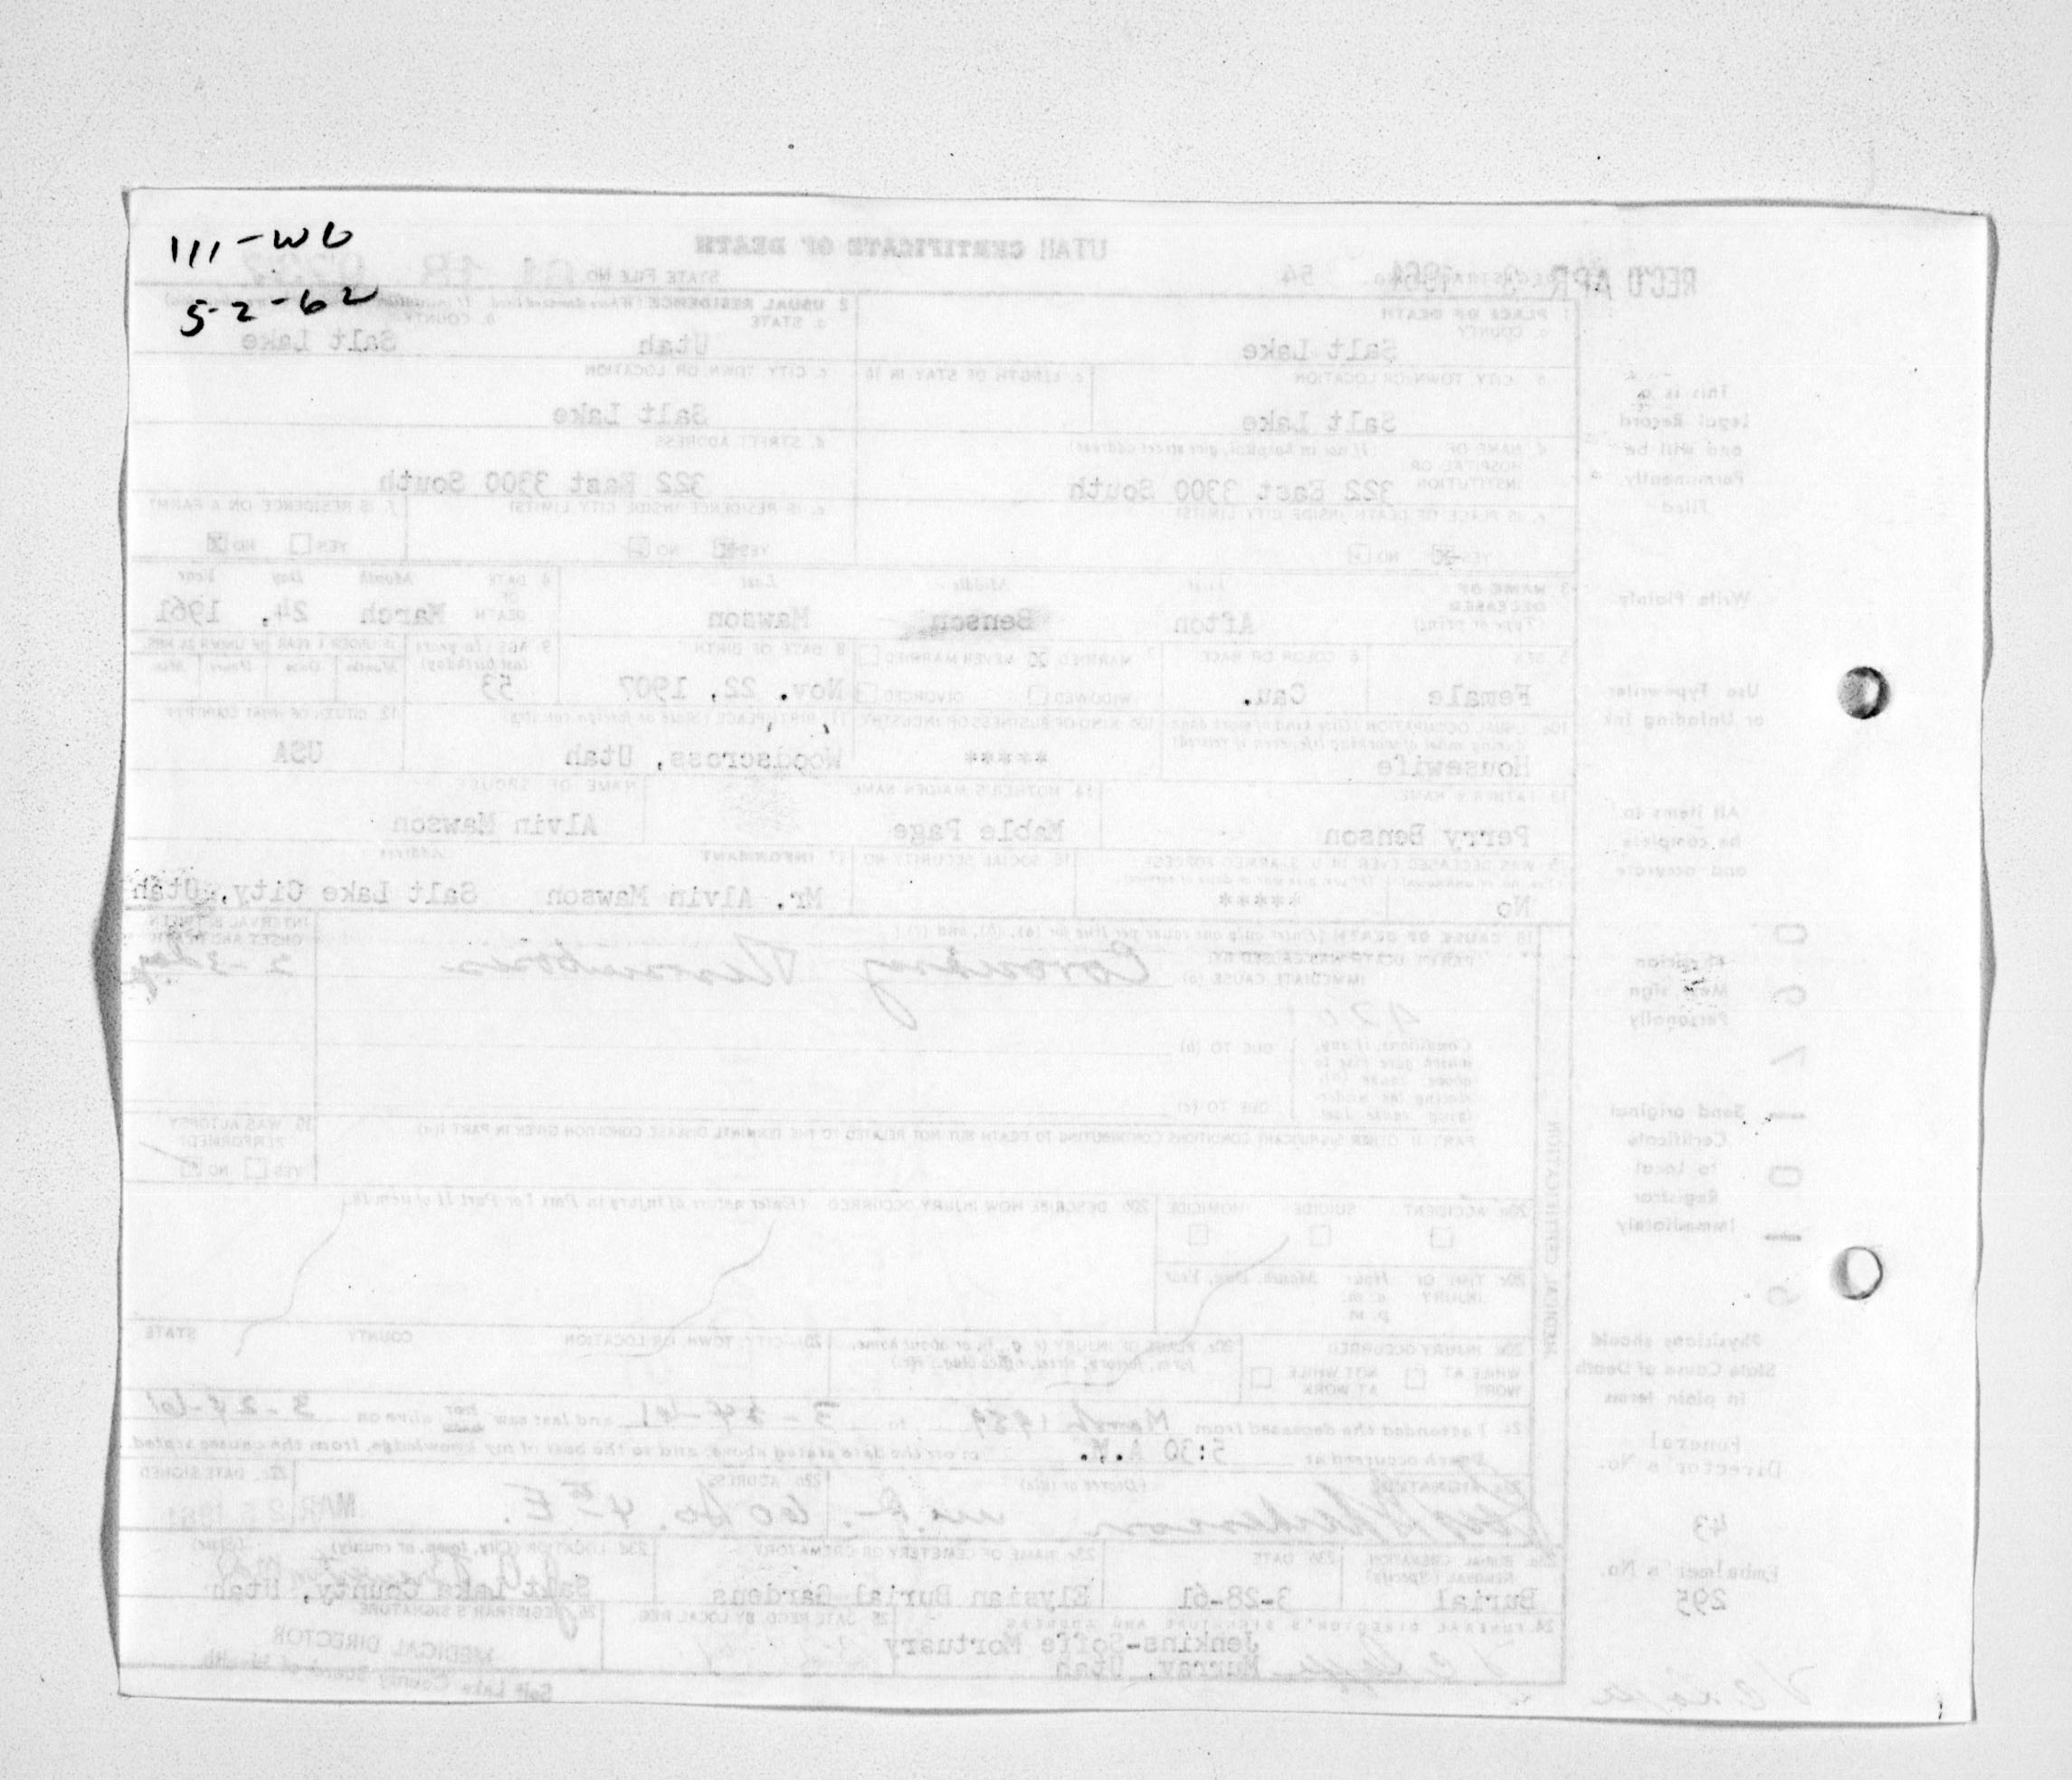 111-WB
5-2-62
UTAH CERTIFICATE OF DEATH
REC'D APR 3 1961
REGISTRAR'S NO. 54
STATE FILE NO.
61 18
1 PLACE OF DEATH
a. COUNTY
Salt Lake
2 USUAL RESIDENCE
a. STATE
Utah
b. COUNTY
Salt Lake
b. CITY, TOWN, OR LOCATION
Salt Lake
c. LENGTH OF STAY IN 1b
c. CITY, TOWN, OR LOCATION
Salt Lake
d. NAME OF HOSPITAL OR INSTITUTION (If not in hospital, give street address)
322 East 3300 South
d. STREET ADDRESS
322 East 3300 South
e. IS PLACE OF DEATH INSIDE CITY LIMITS?
YES NO
e. IS RESIDENCE INSIDE CITY LIMITS?
YES NO
f. IS RESIDENCE ON A FARM?
YES NO
3. NAME OF DECEASED (Type or print)
First Middle Last
Afton Benson Mawson
4. DATE OF DEATH
Month Day Year
March 24, 1961
5. SEX
Female
6. COLOR OR RACE
Cau.
7. MARRIED NEVER MARRIED
WIDOWED DIVORCED
8. DATE OF BIRTH
Nov. 22, 1907
9. AGE (In years last birthday)
53
IF UNDER 1 YEAR
Months Days
IF UNDER 24 HRS.
Hours Min.
10a. USUAL OCCUPATION (Give kind of work done during most of working life, even if retired)
Housewife
10b. KIND OF BUSINESS OR INDUSTRY
*****
11. BIRTHPLACE (State or foreign country)
Woodscross, Utah
12. CITIZEN OF WHAT COUNTRY?
USA
13. FATHER'S NAME
Perry Benson
14. MOTHER'S MAIDEN NAME
Mable Page
NAME OF SPOUSE
Alvin Mawson
15. WAS DECEASED EVER IN U. S. ARMED FORCES?
No *****
16. SOCIAL SECURITY NO.
17. INFORMANT Address
Mr. Alvin Mawson Salt Lake City, Utah
18. CAUSE OF DEATH (Enter only one cause per line for (a), (b), and (c).)
PART I. DEATH WAS CAUSED BY:
IMMEDIATE CAUSE (a) Coronary Thrombosis
INTERVAL BETWEEN ONSET AND DEATH
420
Conditions, if any, which gave rise to above cause (a), stating the underlying cause last.
DUE TO (b)
DUE TO (c)
PART II. OTHER SIGNIFICANT CONDITIONS CONTRIBUTING TO DEATH BUT NOT RELATED TO THE TERMINAL DISEASE CONDITION GIVEN IN PART I(a)
19. WAS AUTOPSY PERFORMED?
YES NO
MEDICAL CERTIFICATION
20a. ACCIDENT SUICIDE HOMICIDE
20b. DESCRIBE HOW INJURY OCCURRED. (Enter nature of injury in Part I or Part II of item 18.)
20c. TIME OF INJURY
Hour Month, Day, Year
a. m.
p. m.
20d. INJURY OCCURRED
WHILE AT WORK NOT WHILE AT WORK
20e. PLACE OF INJURY (e. g., in or about home, farm, factory, street, office bldg., etc.)
20f. CITY, TOWN, OR LOCATION COUNTY STATE
21. I attended the deceased from March 1959 to 3-24-61 and last saw her alive on 3-24-61
Death occurred at 5:30 A.M. m on the date stated above; and to the best of my knowledge, from the causes stated.
22a. SIGNATURE (Degree or title)
22b. ADDRESS
60 So. 4th E.
22c. DATE SIGNED
MAR 25 1961
23a. BURIAL, CREMATION, REMOVAL (Specify)
Burial
23b. DATE
3-28-61
23c. NAME OF CEMETERY OR CREMATORY
Elysian Burial Gardens
23d. LOCATION (City, town, or county) (State)
Salt Lake County, Utah
24. FUNERAL DIRECTOR'S SIGNATURE AND ADDRESS
Jenkins-Soffe Mortuary
Murray, Utah
25. DATE RECD. BY LOCAL REG.
26. REGISTRAR'S SIGNATURE
MEDICAL DIRECTOR
Salt Lake County Board of Health
This is a
Legal Record
and will be
Permanently
Filed
Write Plainly
Use Typewriter
or Unfading Ink
All items to
be complete
and accurate
Physician
Must sign
Personally
Send original
Certificate
to Local
Registrar
Immediately
Physicians should
State Cause of Death
in plain terms
Funeral
Director's No.
43
Embalmer's No.
295